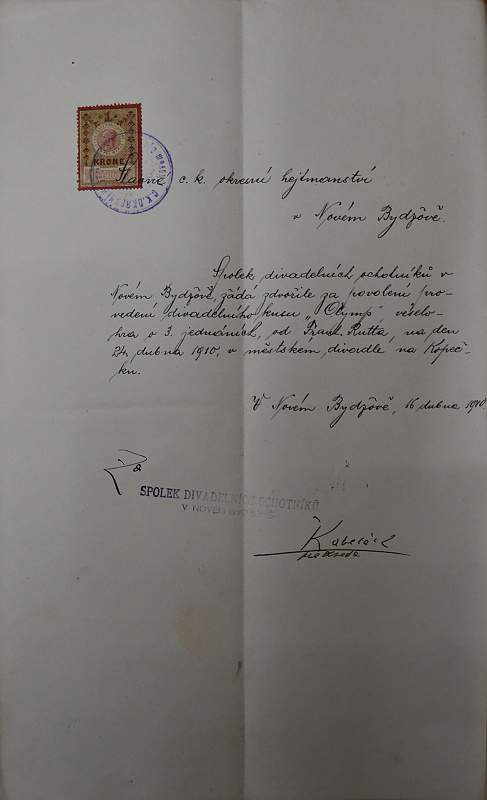 1
KRONE
C.K. OKRESNÍ
Slavné c. k. okresní hejtmanství
v Novém Bydžově.
Spolek divadelních ochotníků v
Novém Bydžově, žádá zdvořile za povolení pro-
vedení divadelního kusu „Olymp" veselo-
hra o 3. jednáních, od Frant. Rutta, na den
24. dubna 1910, v městském divadle na Kopeč-
ku.
V Novém Bydžově, 16 dubna 1910
Za
SPOLEK DIVADELNÍCH OCHOTNÍKŮ
V NOVÉM BYDŽOVĚ
předseda.